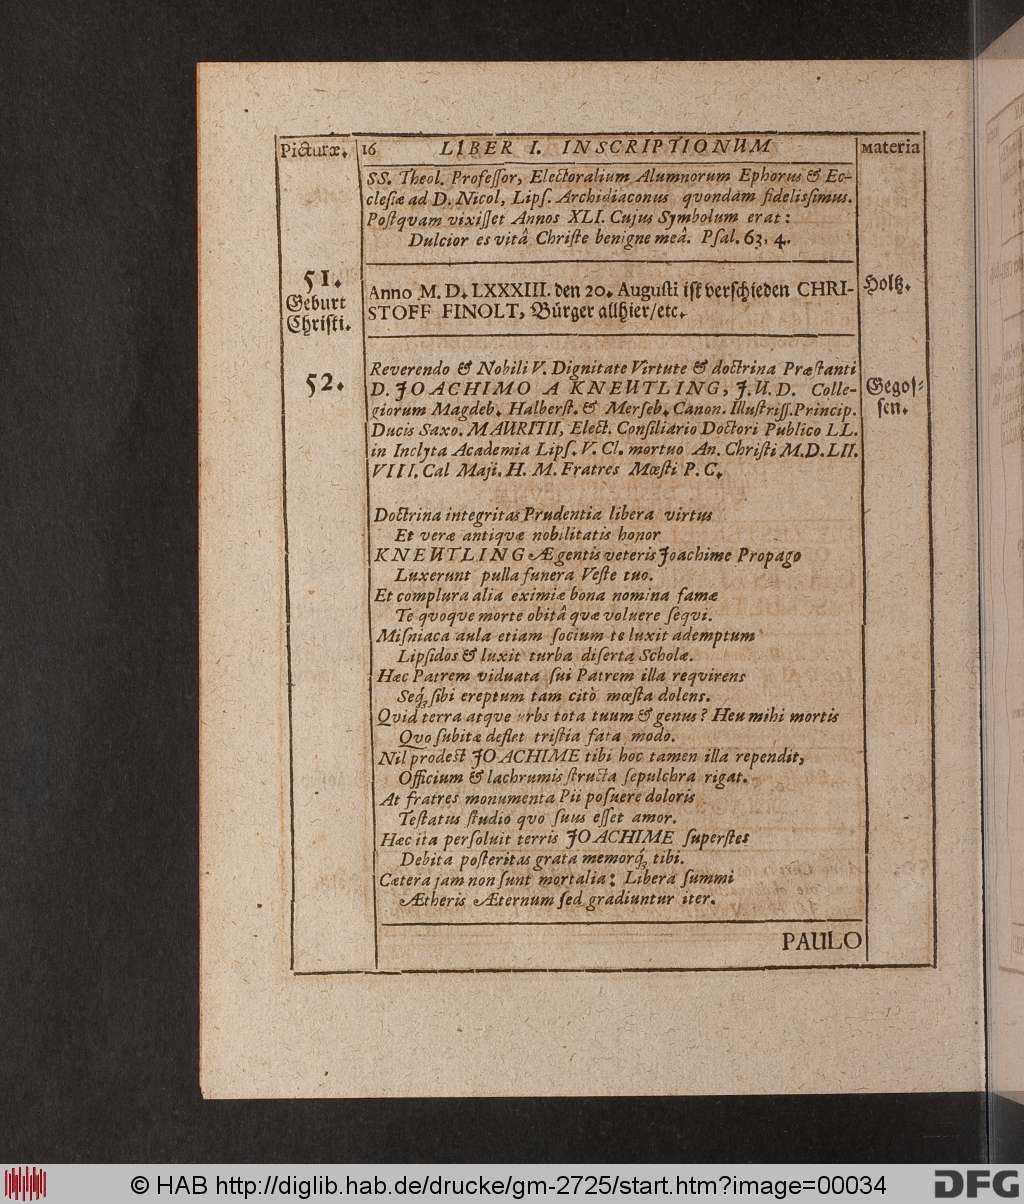 Picturæ. 16 LIBER I. INSCRIPTIONUM Materia
SS. Theol. Professor, Electoralium Alumnorum Ephorus & Ec-
clesiæ ad D. Nicol, Lips. Archidiaconus qvondam fidelissimus.
Postqvam vixisset Annos XLI. Cujus Symbolum erat:
Dulcior es vitâ Christe benigne meâ. Psal. 63, 4.
51.
Geburt
Christi.
Anno M. D. LXXXIII. den 20. Augusti ist verschieden CHRI-
STOFF FINOLT, Bürger allhier/etc.
Holtz.
52.
Reverendo & Nobili V. Dignitate Virtute & doctrina Præstanti
D. JOACHIMO A KNEUTLING, J. U. D. Colle-
giorum Magdeb. Halberst. & Merseb. Canon. Illustriss. Princip.
Ducis Saxo. MAURITII, Elect. Consiliario Doctori Publico LL.
in Inclyta Academia Lips. V. Cl. mortuo An. Christi M.D.LII.
VIII. Cal Maji. H. M. Fratres Mœsti P. C.
Gegos-
sen.
Doctrina integritas Prudentia libera virtus
Et veræ antiqvæ nobilitatis honor
KNEUTLINGÆ gentis veteris Joachime Propago
Luxerunt pulla funera Veste tuo.
Et complura alia eximiæ bona nomina famæ
Te qvoqve morte obitâ qvæ voluere seqvi.
Misniaca aula etiam socium te luxit ademptum
Lipsidos & luxit turba diserta Scholæ.
Hæc Patrem viduata sui Patrem illa reqvirens
Seq́; sibi ereptum tam citò mœsta dolens.
Qvid terra atqve urbs tota tuum & genus? Heu mihi mortis
Qvo subitæ deflet tristia fata modo.
Nil prodest JOACHIME tibi hoc tamen illa rependit,
Officium & lachrumis structa sepulchra rigat.
At fratres monumenta Pii posuere doloris
Testatus studio qvo suus esset amor.
Hæc ita persoluit terris JOACHIME superstes
Debita posteritas grata memorq́; tibi.
Cætera jam non sunt mortalia: Libera summi
Ætheris Æternum sed gradiuntur iter.
PAULO
© HAB http://diglib.hab.de/drucke/gm-2725/start.htm?image=00034
DFG